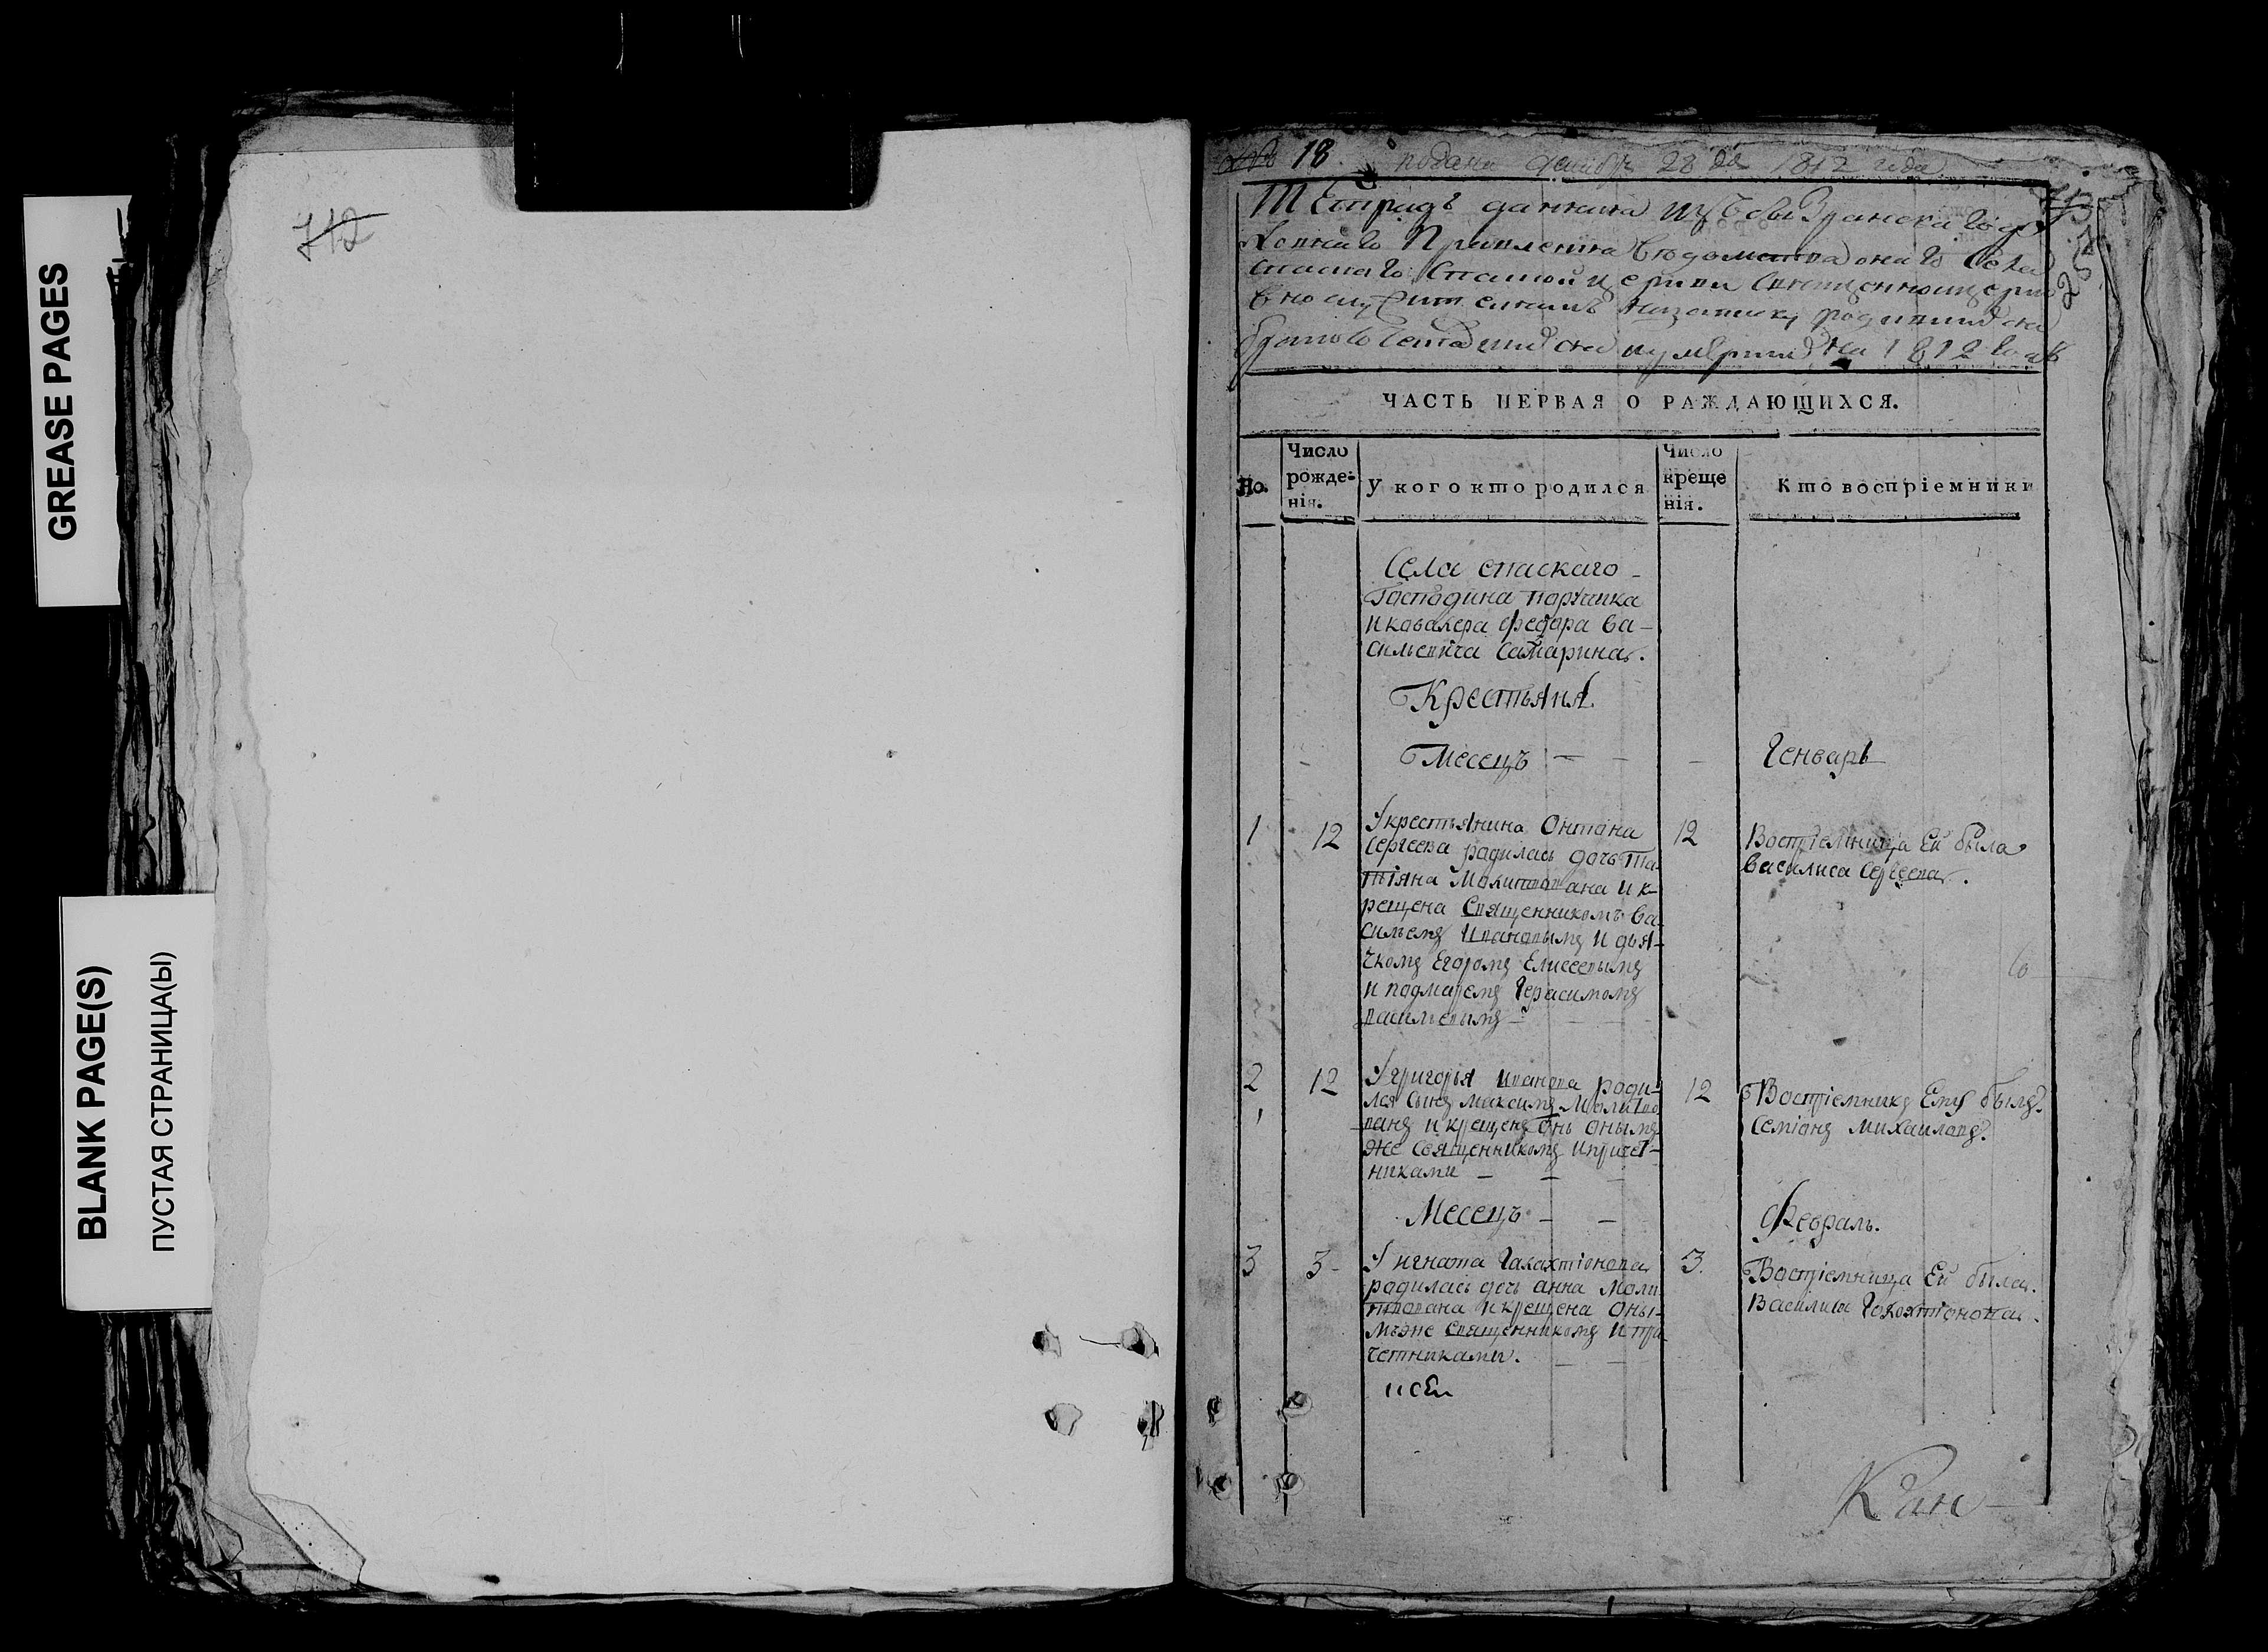 GREASE PAGES
BLANK PAGE(S)
ПУСТАЯ СТРАНИЦА(Ы)
712
18. подана декабря 28 дня 1812 года
Тетрадь данная изъ
Правления ведомства онаго села
Спаскаго Спаской церкви священноцерко
родившихся
на 1812 годъ
ЧАСТЬ ПЕРВАЯ О РАЖДАЮЩИХСЯ.
Но.
Число рожде-нія.
У кого кто родился
Число креще нія.
Кто воспріемники
Села спаскаго
Господина порутчика
и кавалера федора ва-
сильевича Самарина.
Крестьяня
Месецъ
Генварь
1
12
У крестьянина Онтона
Сергеева родилась дочь Та-
тіяна Молитвована и к-
рещена Священникомъ ва-
сильемъ Ивановымъ и дья-
чкомъ Егоромъ Елисеевымъ
и пономаремъ Герасимомъ
васильевымъ
12
Воспріемница Ей была
василиса Сергеева.
2
12
У григорья иванова роди-
лся сынъ максимъ Молитво
ванъ и крещенъ онъ онымъ
же священникомъ и причет-
никами
12
Воспріемникъ Ему былъ
Семіонъ михаиловъ.
Месецъ
Февраль.
3
3
У игната Галахтіонова
родилась дочь анна моли
твована и крещена оны-
мъ же священникомъ и при
четниками.
3.
Воспріемница Ей была.
Василиса Галахтіонова.